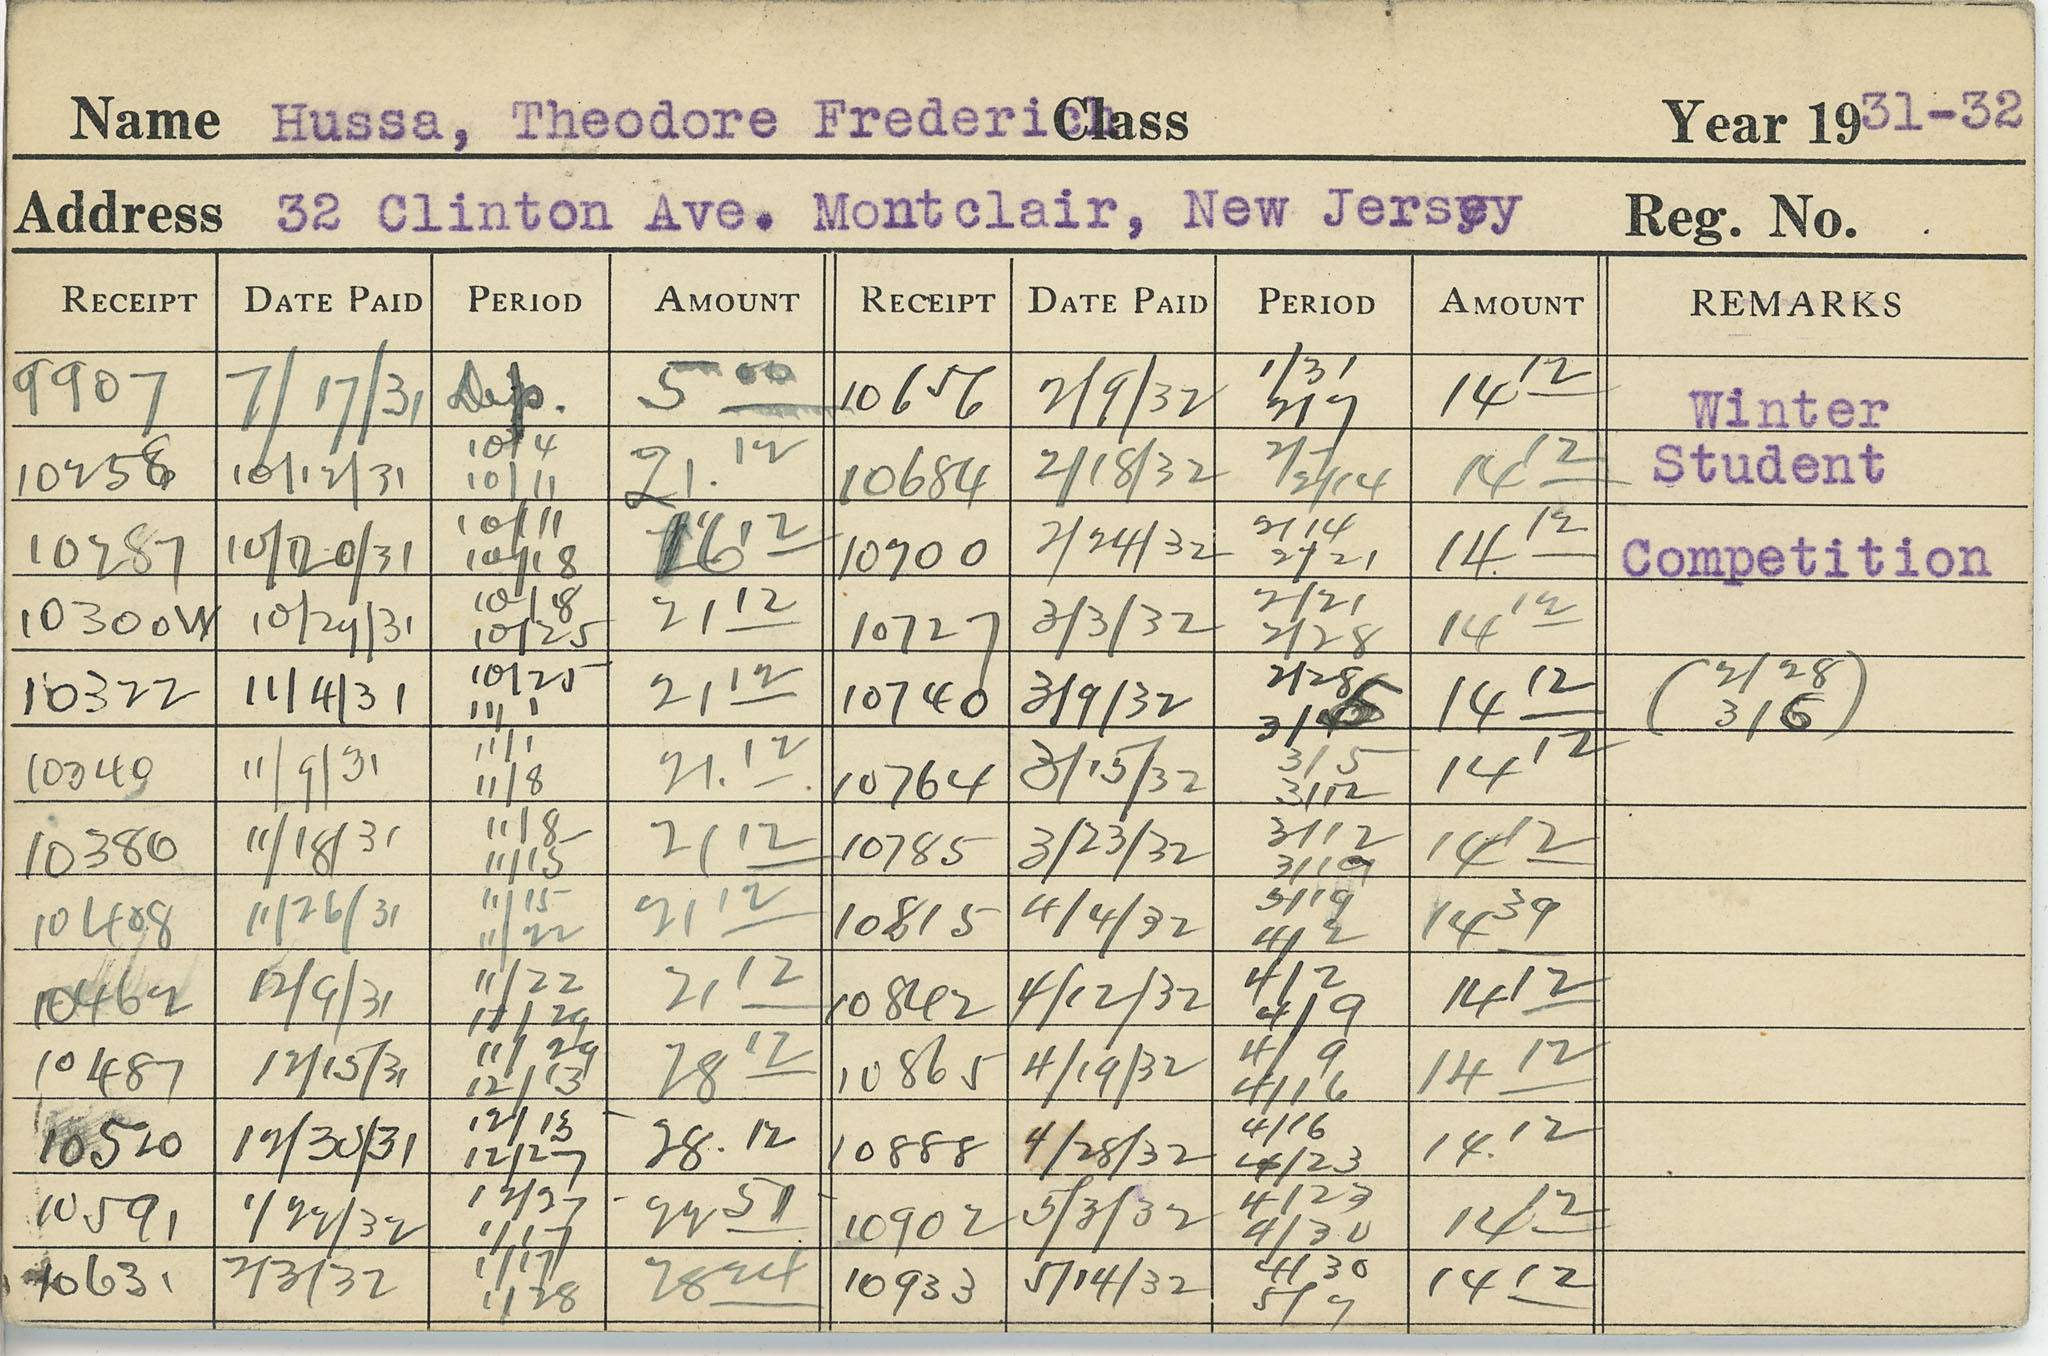 Name Hussa, Theodore Frederich Class Year 1931-32
Address 32 Clinton Ave. Montclair, New Jersey Reg. No.
RECEIPT DATE PAID PERIOD AMOUNT RECEIPT DATE PAID PERIOD AMOUNT REMARKS
9907 7/17/31 Dep. 5 00 10656 2/9/32 1/31 2/7 14 12 Winter
10258 10/12/31 10/4 10/11 21.12 10684 2/18/32 2/7 2/14 14 12 Student
10287 10/20/31 10/11 10/18 16 12 10700 2/24/32 2/14 2/21 14 12 Competition
10300W 10/29/31 10/18 10/25 21 12 10727 3/3/32 2/21 2/28 14 12
10322 11/4/31 10/25 11/1 21 12 10740 3/9/32 2/28 3/5 14 12 (2/28 3/6)
10349 11/9/31 11/1 11/8 21.12 10764 3/15/32 3/5 3/12 14 12
10380 11/18/31 11/8 11/15 21 12 10785 3/23/32 3/12 3/19 14 12
10408 11/26/31 11/15 11/22 21 12 10815 4/4/32 3/19 4/2 14 39
10462 12/9/31 11/22 11/29 21 12 10842 4/12/32 4/2 4/9 14 12
10487 12/15/31 11/29 12/13 28 12 10865 4/19/32 4/9 4/16 14 12
10520 12/30/31 12/13 12/27 28.12 10888 4/28/32 4/16 4/23 14.12
10591 1/22/32 12/27 1/17 22 51 10902 5/3/32 4/23 4/30 14 12
10631 2/3/32 1/17 1/28 28 24 10933 5/14/32 4/30 5/7 14 12